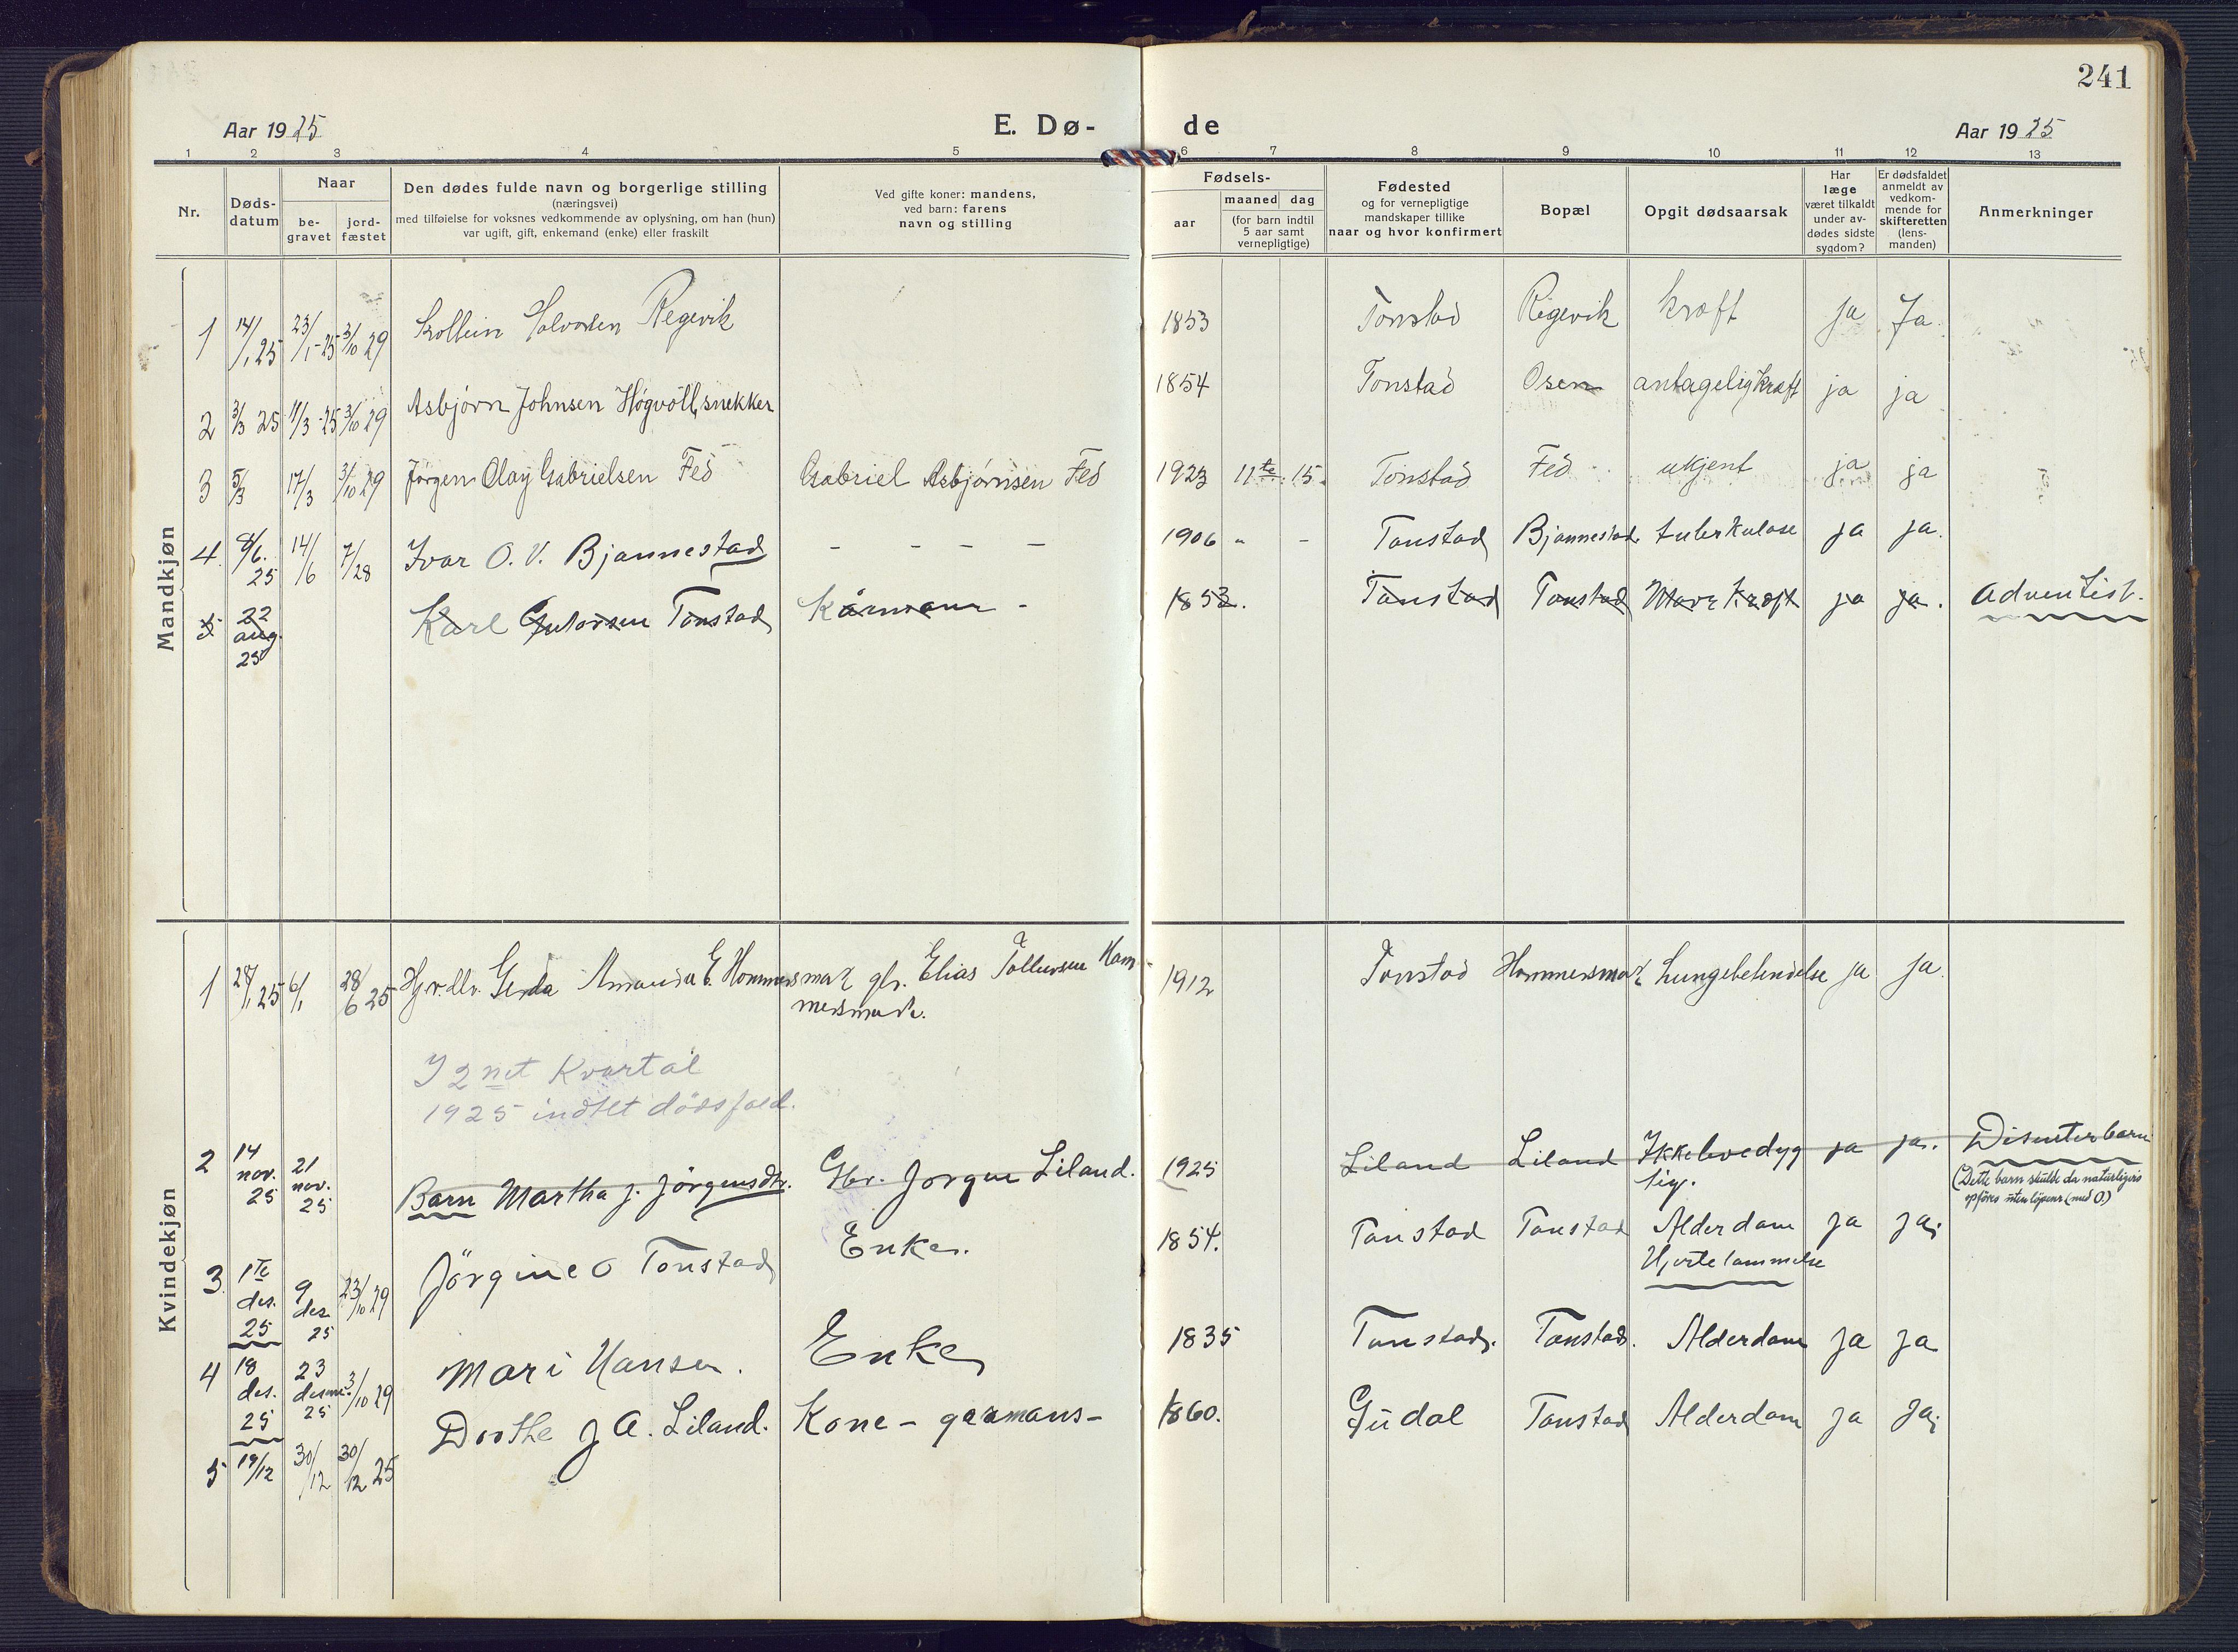 241
Aar 1925 E. Dø- de Aar 1925
1 2 3 4 5 6 7 8 9 10 11 12 13
Nr.
Døds-
datum
Naar
be-
gravet
jord-
fæstet
Den dødes fulde navn og borgerlige stilling
(næringsvei)
med tilføielse for voksnes vedkommende av oplysning, om han (hun)
var ugift, gift, enkemand (enke) eller fraskilt
Ved gifte koner: mandens,
ved barn: farens
navn og stilling
Fødsels-
aar
maaned dag
(for barn indtil
5 aar samt
vernepligtige)
Fødested
og for vernepligtige
mandskaper tillike
naar og hvor konfirmert
Bopæl
Opgit dødsaarsak
Har
læge
været tilkaldt
under av-
dødes sidste
sygdom?
Er dødsfaldet
anmeldt av
vedkom-
mende for
skifteretten
(lens-
manden)
Anmerkninger
Mandkjøn
1 14/1 25 23/1-25 3/10 29 Halvorsen Regevik 1853 Tonstad Regevik kræft ja Ja
2 3/3 25 11/3-25 3/10 29 Asbjørn Johnsen Høgvoll, snekker 1854 Tonstad Osen antagelig kræft ja ja
3 5/3 17/3 3/10 29 Jørgen Olay Gabrielsen Fed Gabriel Asbjørnsen Fed 1923 11te 15. Tonstad Fed ukjent ja ja
4 8/6. 25 14/6 7/28 Ivar O. V. Bjannestad - - - - 1906 " - Tonstad Bjannestad tuberkulose ja ja.
5 22 aug. 25 Karl Tonstad Kårmann - 1853. Tonstad Tonstad Mave kræft ja ja. Adventist.
Kvindekjøn
1 28/6 25 Gerda Amanda E. Hommersmark Elias Tollevsen Hom-
mersmark.
1912 Tonstad Hommersmark Lungebetendelse ja ja.
I 2net Kvartal
1925 indtet dödsfald.
2 14 nov. 25 21 nov. 25 Barn Martha J. Jörgensdtr. Gbr. Jorgen Liland. 1925 Liland Liland Ikke levedyg
tig.
ja ja. Disenterbarn
(Dette barn skulde da naturligvis
opföres uten löpenr. (med 0.)
3. 1te des. 25 9 des 25 23/10 29 Jörgine O Tonstad Enke. 1854. Tonstad Tonstad Alderdom
Hjertelammelse
ja ja.
4 18 des. 25 23 25 3/10 29 Mari Hansen. Enke 1835 Tonstad. Tonstad. Alderdom ja ja
5 19/12 30/12 30/12 25 Dorthe J A. Liland. Kone - 1860. Gudal Tonstad Alderdom ja ja.